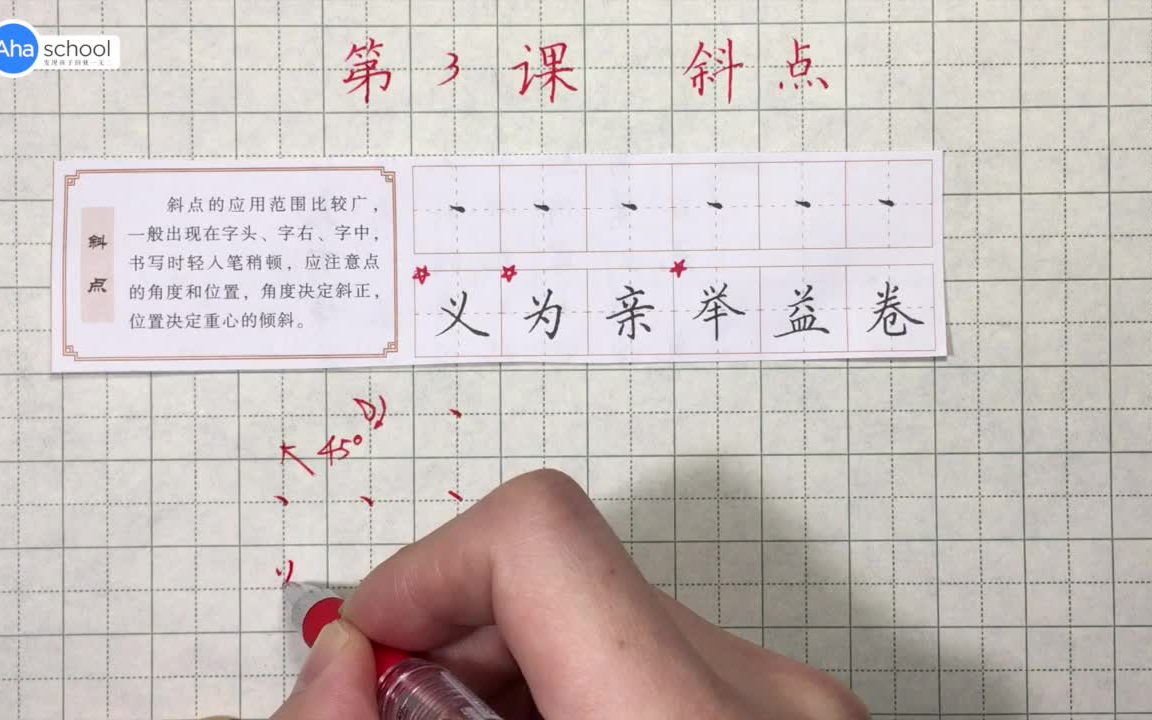 Aha school
发现孩子的独一无二
第3课 斜点
斜点
斜点的应用范围比较广，
一般出现在字头、字右、字中，
书写时轻入笔稍顿，应注意点
的角度和位置，角度决定斜正，
位置决定重心的倾斜。
义 为 亲 举 益 卷
45°